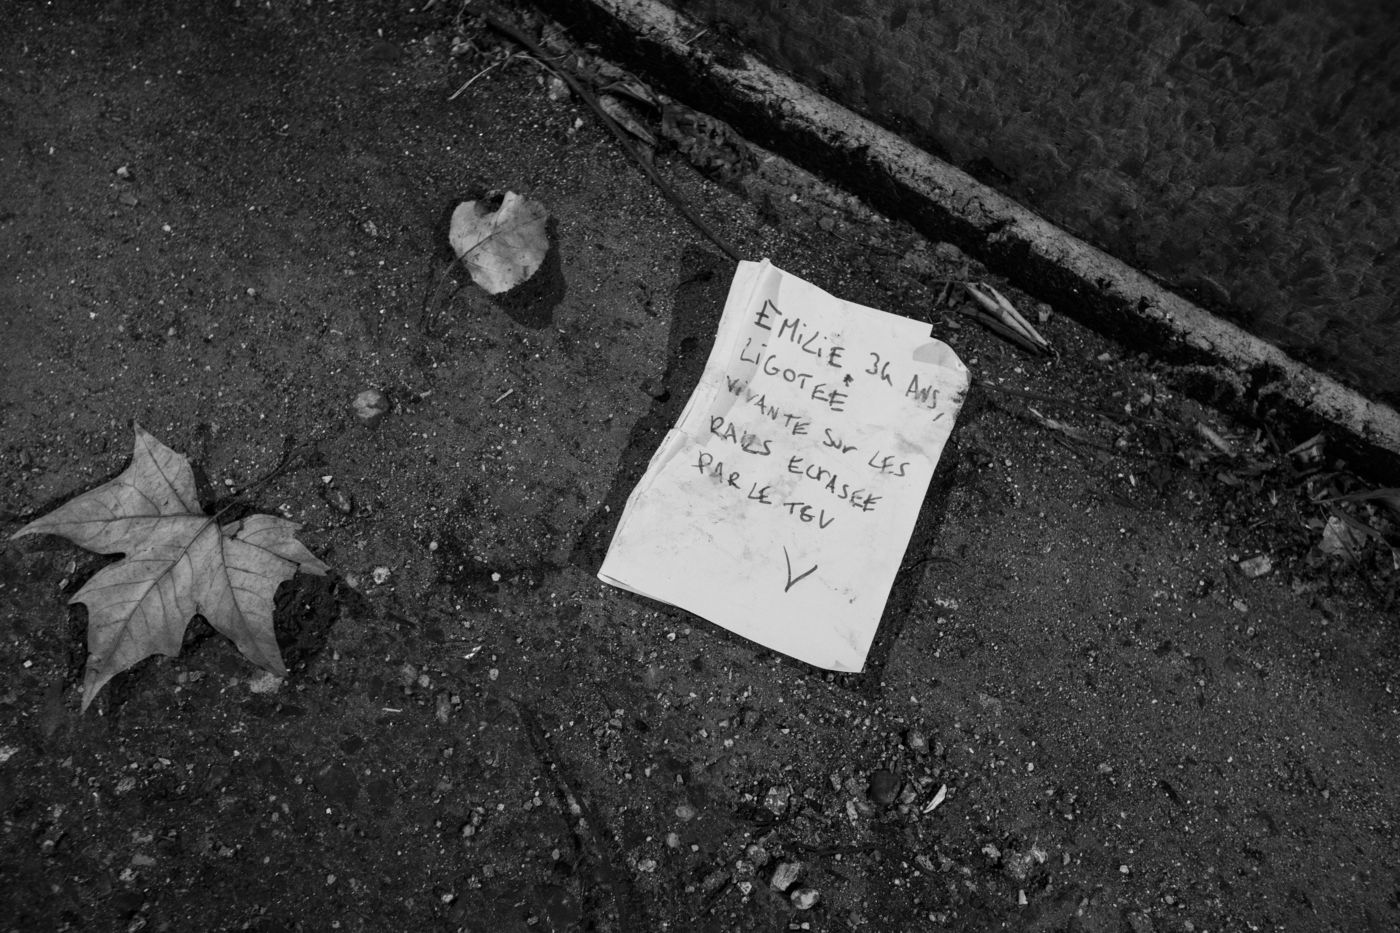 EMILIE, 34 ANS,
LIGOTEE
VIVANTE SUR LES
RAILS ECRASEE
PAR LE TGV
V